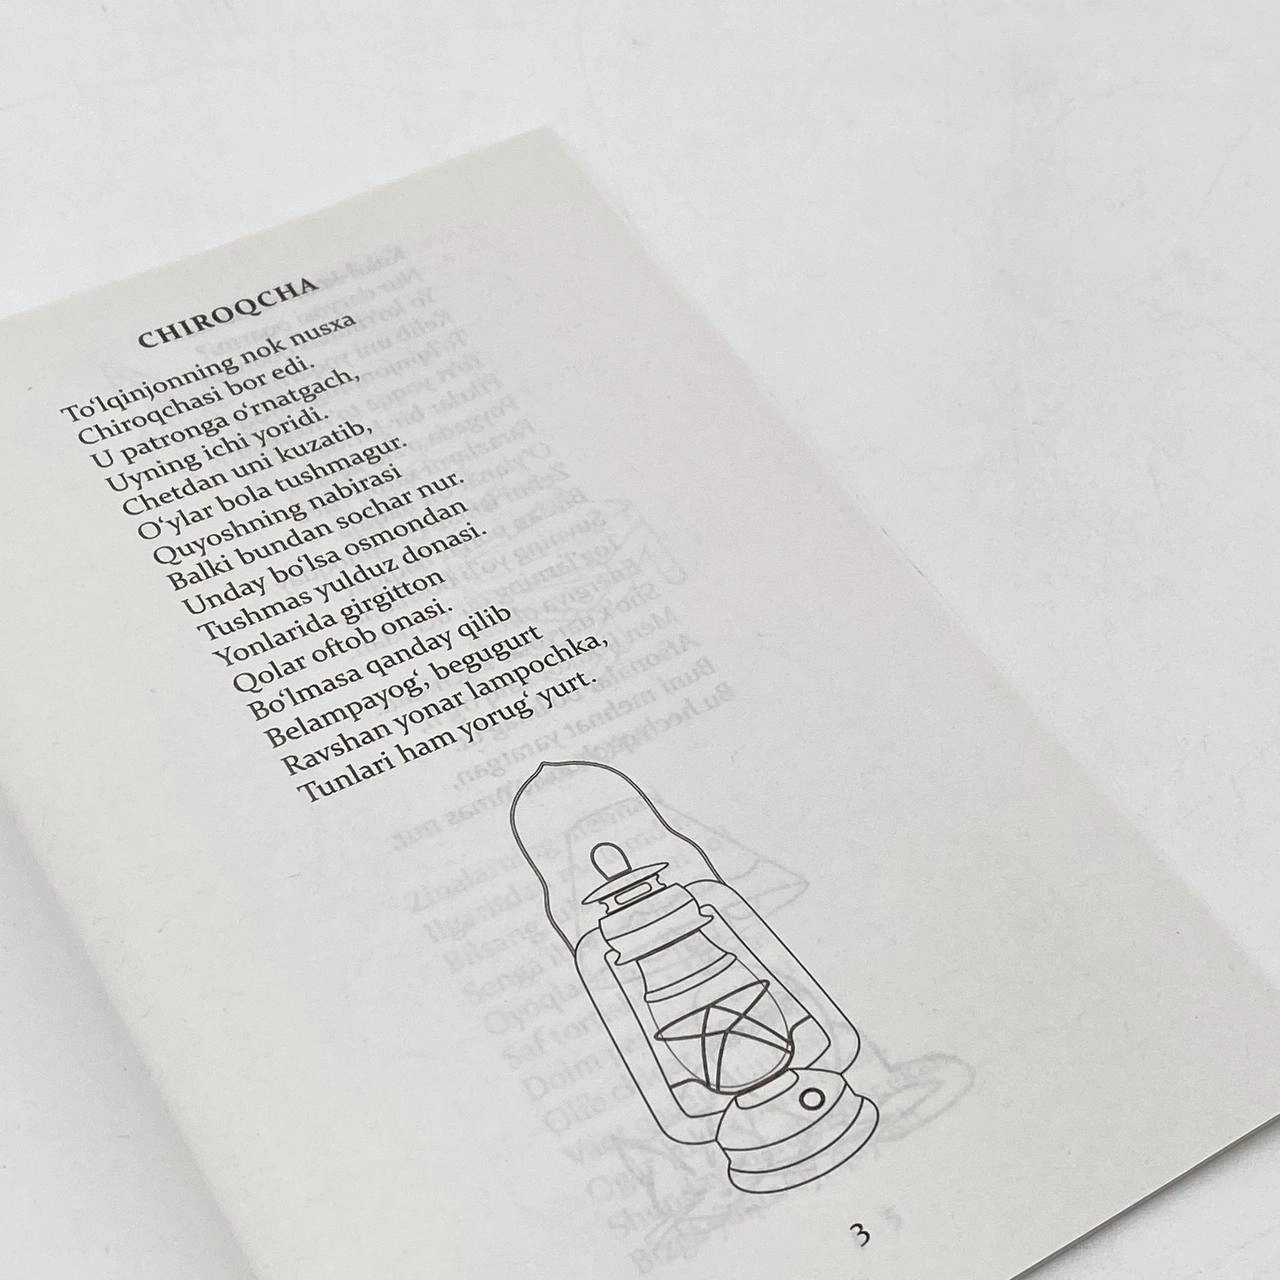 CHIROQCHA
To‘lqinjonning nok nusxa
Chiroqchasi bor edi.
U patronga o‘rnatgach,
Uyning ichi yoridi.
Chetdan uni kuzatib,
O‘ylar bola tushmagur.
Quyoshning nabirasi
Balki bundan sochar nur.
Unday bo‘lsa osmondan
Tushmas yulduz donasi.
Yonlarida girgitton
Qolar oftob onasi.
Bo‘lmasa qanday qilib
Belampayog‘, begugurt
Ravshan yonar lampochka,
Tunlari ham yorug‘ yurt.
3